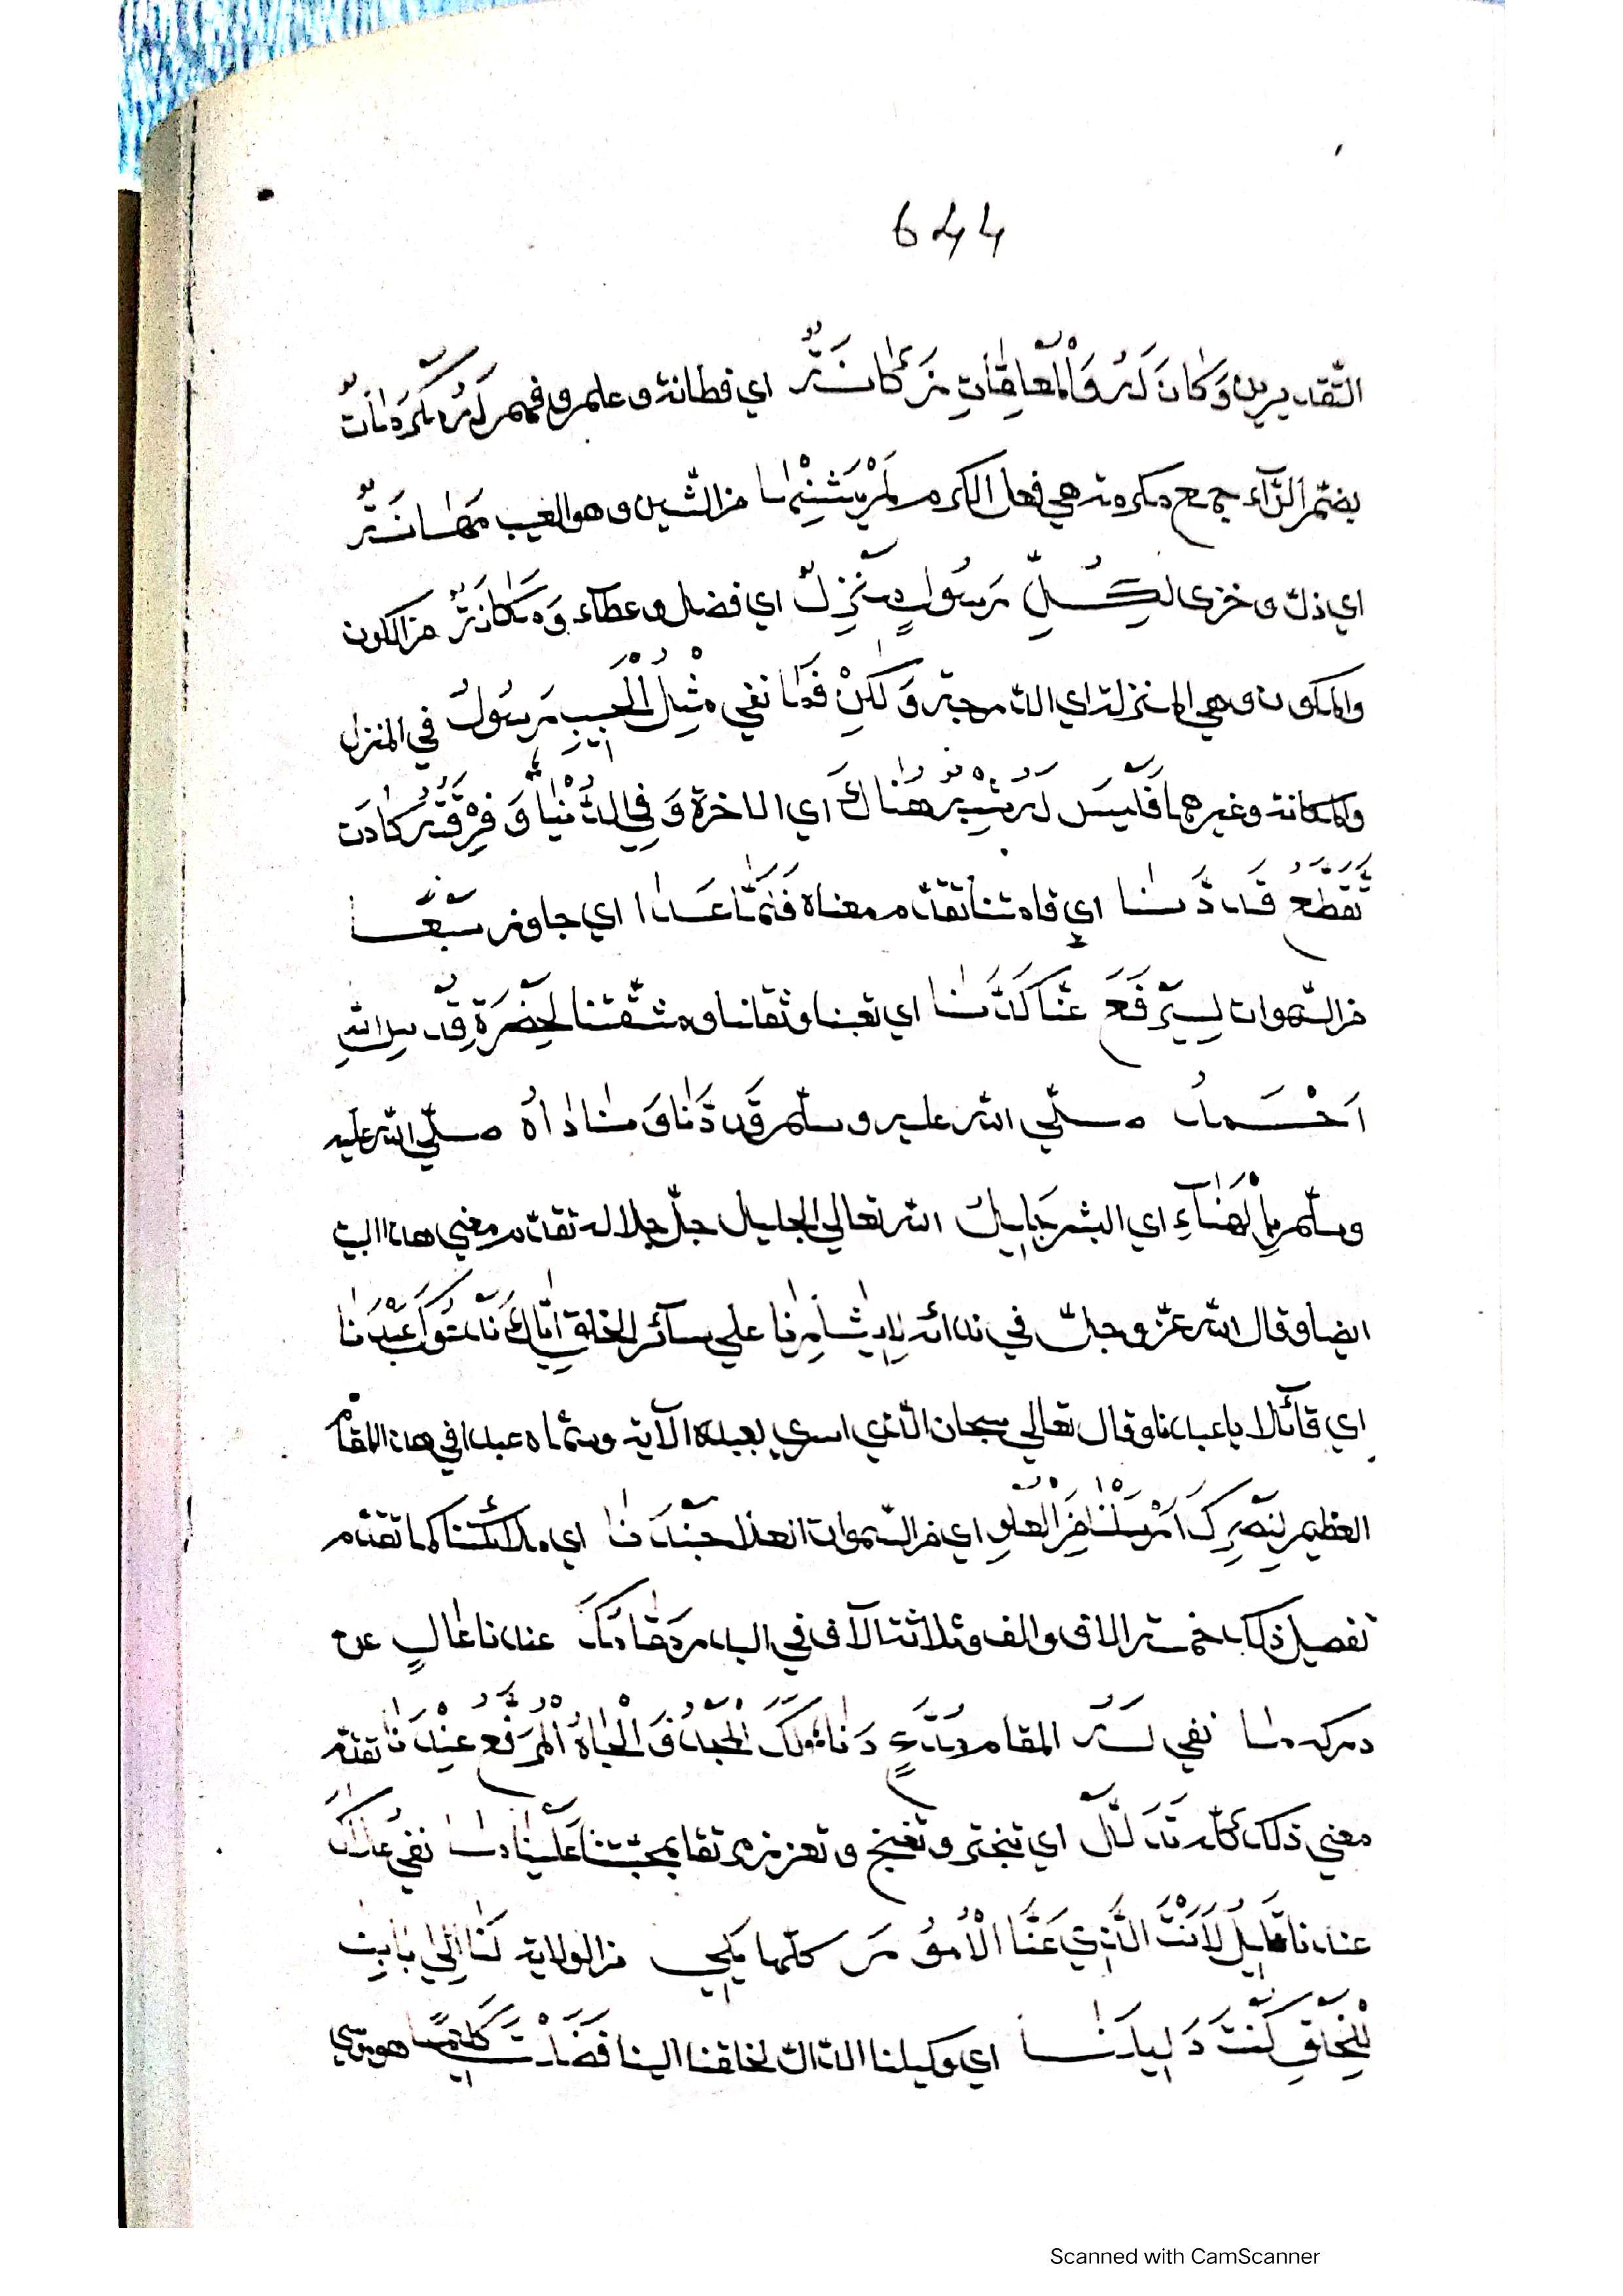 644
التّقديرين وَكَانَ لَهُ وَالْعَاقِبَاتِ زَكَانَةٌ اي فطانة وعلم وفهم لَهُ مَكْرُمَاتٌ
بضم الرّاء جمع مكرمة هي فعل الكرم لَمْ يَشِنْهَا من الشين وهو العيب مَهَانَةٌ
اي ذل وخزى لِكُلِّ رَسُولٍ نُزِلٌ اي فضل وعطاء وَمَكَانَةٌ من الكون
والمكون وهي المنزلة اي المرتبة وَلَكِنْ فَمَا نفي مِثْلُ الْحَبِيبِ رَسُولُ في المنزل
والمكانة وغيرهما فَلَيْسَ لَهُ شِبْهٌ هُنَاكَ اي الاخرة وَفِي الدُّنْيَا وَفِرْقَتُهُ كَادَتْ
تُقَطِّعُ قَدَّنَا اي قامتنا تقدم معناه فَلَمَّا عَدَا اي جاوز سَبْعًا
من السّموات لِيُرْفَعَ عَنَّا كَدُّنَا اي تعبنا وثقلنا ومشقتنا لِحَضْرَةِ قُدْسِ اللهِ
اَحْمَدُ صلّي الله عليه وسلّم قَدْ دَنَا وَنَادَاهُ صلّي الله عليه
وسلّم بِالْهَنَاءِ اي البشر جَلِيلٌ الله تعالي الجليل جلّ جلاله تقدم معني هذا البيت
ايضا وقال الله عزّ وجلّ في ندائه علي سائر الخلق عَبْدَنَا
اي قائلا يا عبدنا وقال تعالي سبحان الّذي اسري بعبده الآية وسمّاه عبدا في هذا المقام
العظيم لِنَصْرِكَ اَرْسَلْنَا مِنَ الْعُلُوِ اي من السّموات العلا جُنْدَنَا اي ملائكتنا كما تقدم
تفصيل ذلك بخمسة الاف والف وثلاثة آلاف في البدر مَقَامُكَ عندنا عَالٍ عن
دركه مَا نفي لَهُ المقام دَنَا لَكَ الْحَمْدُ وَالْجَاهُ الْمُرَفَّعُ عِنْدَنَا تقدّم
معني ذلك كلّه تَدَلَّلْ اي تبختر وتغنج وتعزز بمحبتنا عَلَيْنَا مَا نفي
عندنا لَاَنْتَ الَّذِي عَنَّا الْاُمُورَ كلّها يَلِي من الولاية لَنَا اِلَى بَابِنَا
لِلْخَلْقِ كُنْتَ دَلِيلَنَا اي وكيلنا الدال لخلقنا الينا فَضَلْتَ كَلِيمًا هو موسي
Scanned with CamScanner